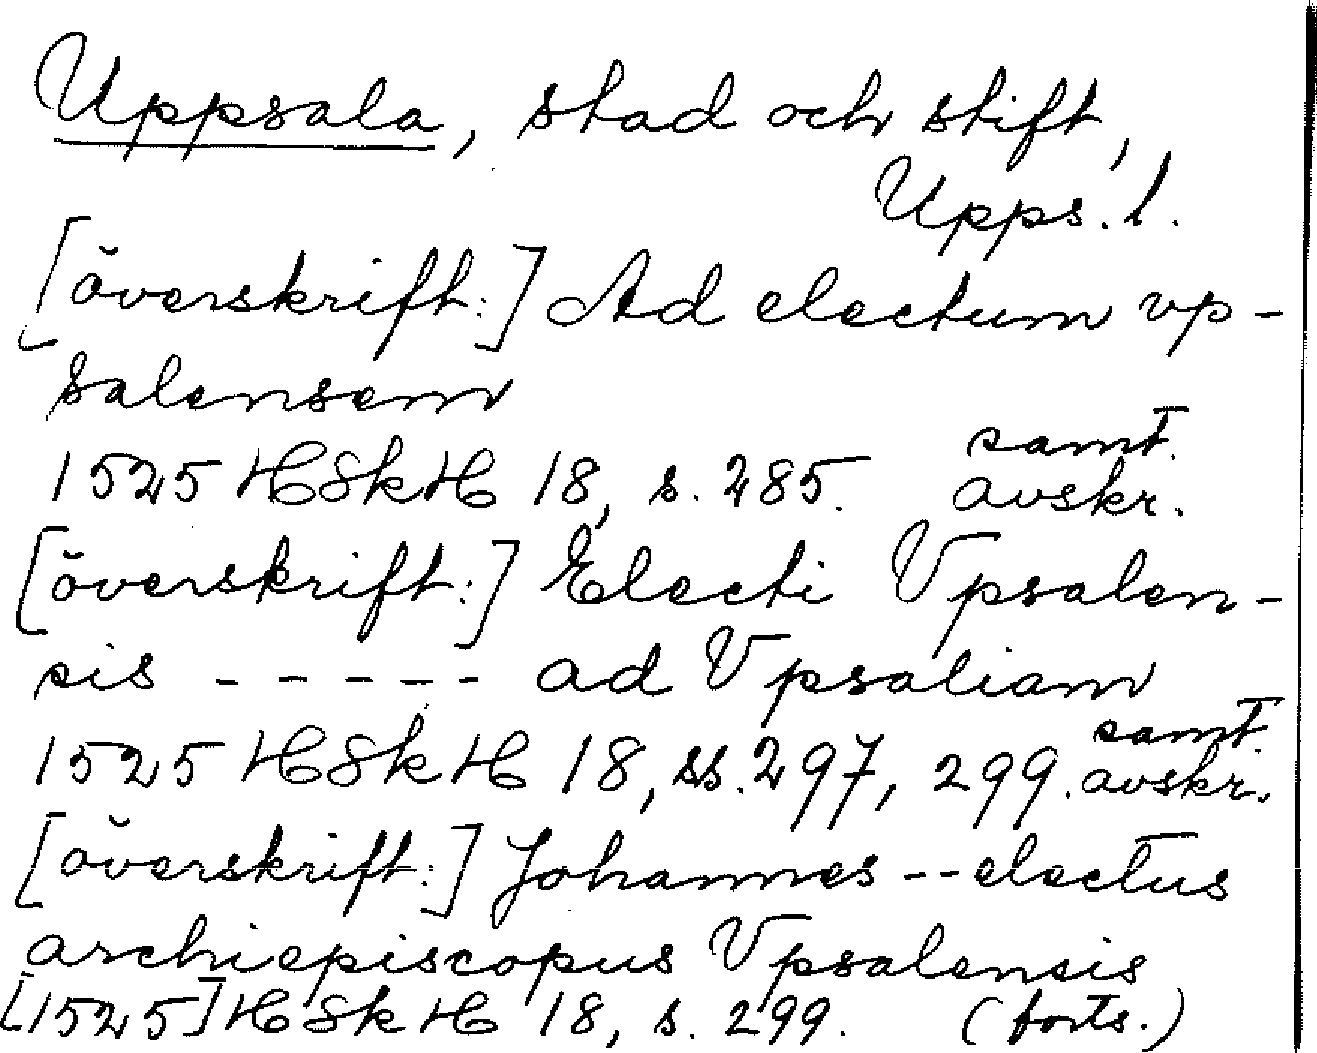 Uppsala, stad och stift,
Upps. l.
[överskrift:] Ad electum vp-
salensem
1525 HSkH 18, s. 285. samt. avskr.
[överskrift:] Electi Vpsalen-
sis - - - - - ad Vpsaliam
1525 HSkH 18, ss. 297, 299. samt. avskr.
[överskrift:] Johannes -- electus
archiepiscopus Vpsalensis
[1525] HSkH 18, s. 299. (forts.)